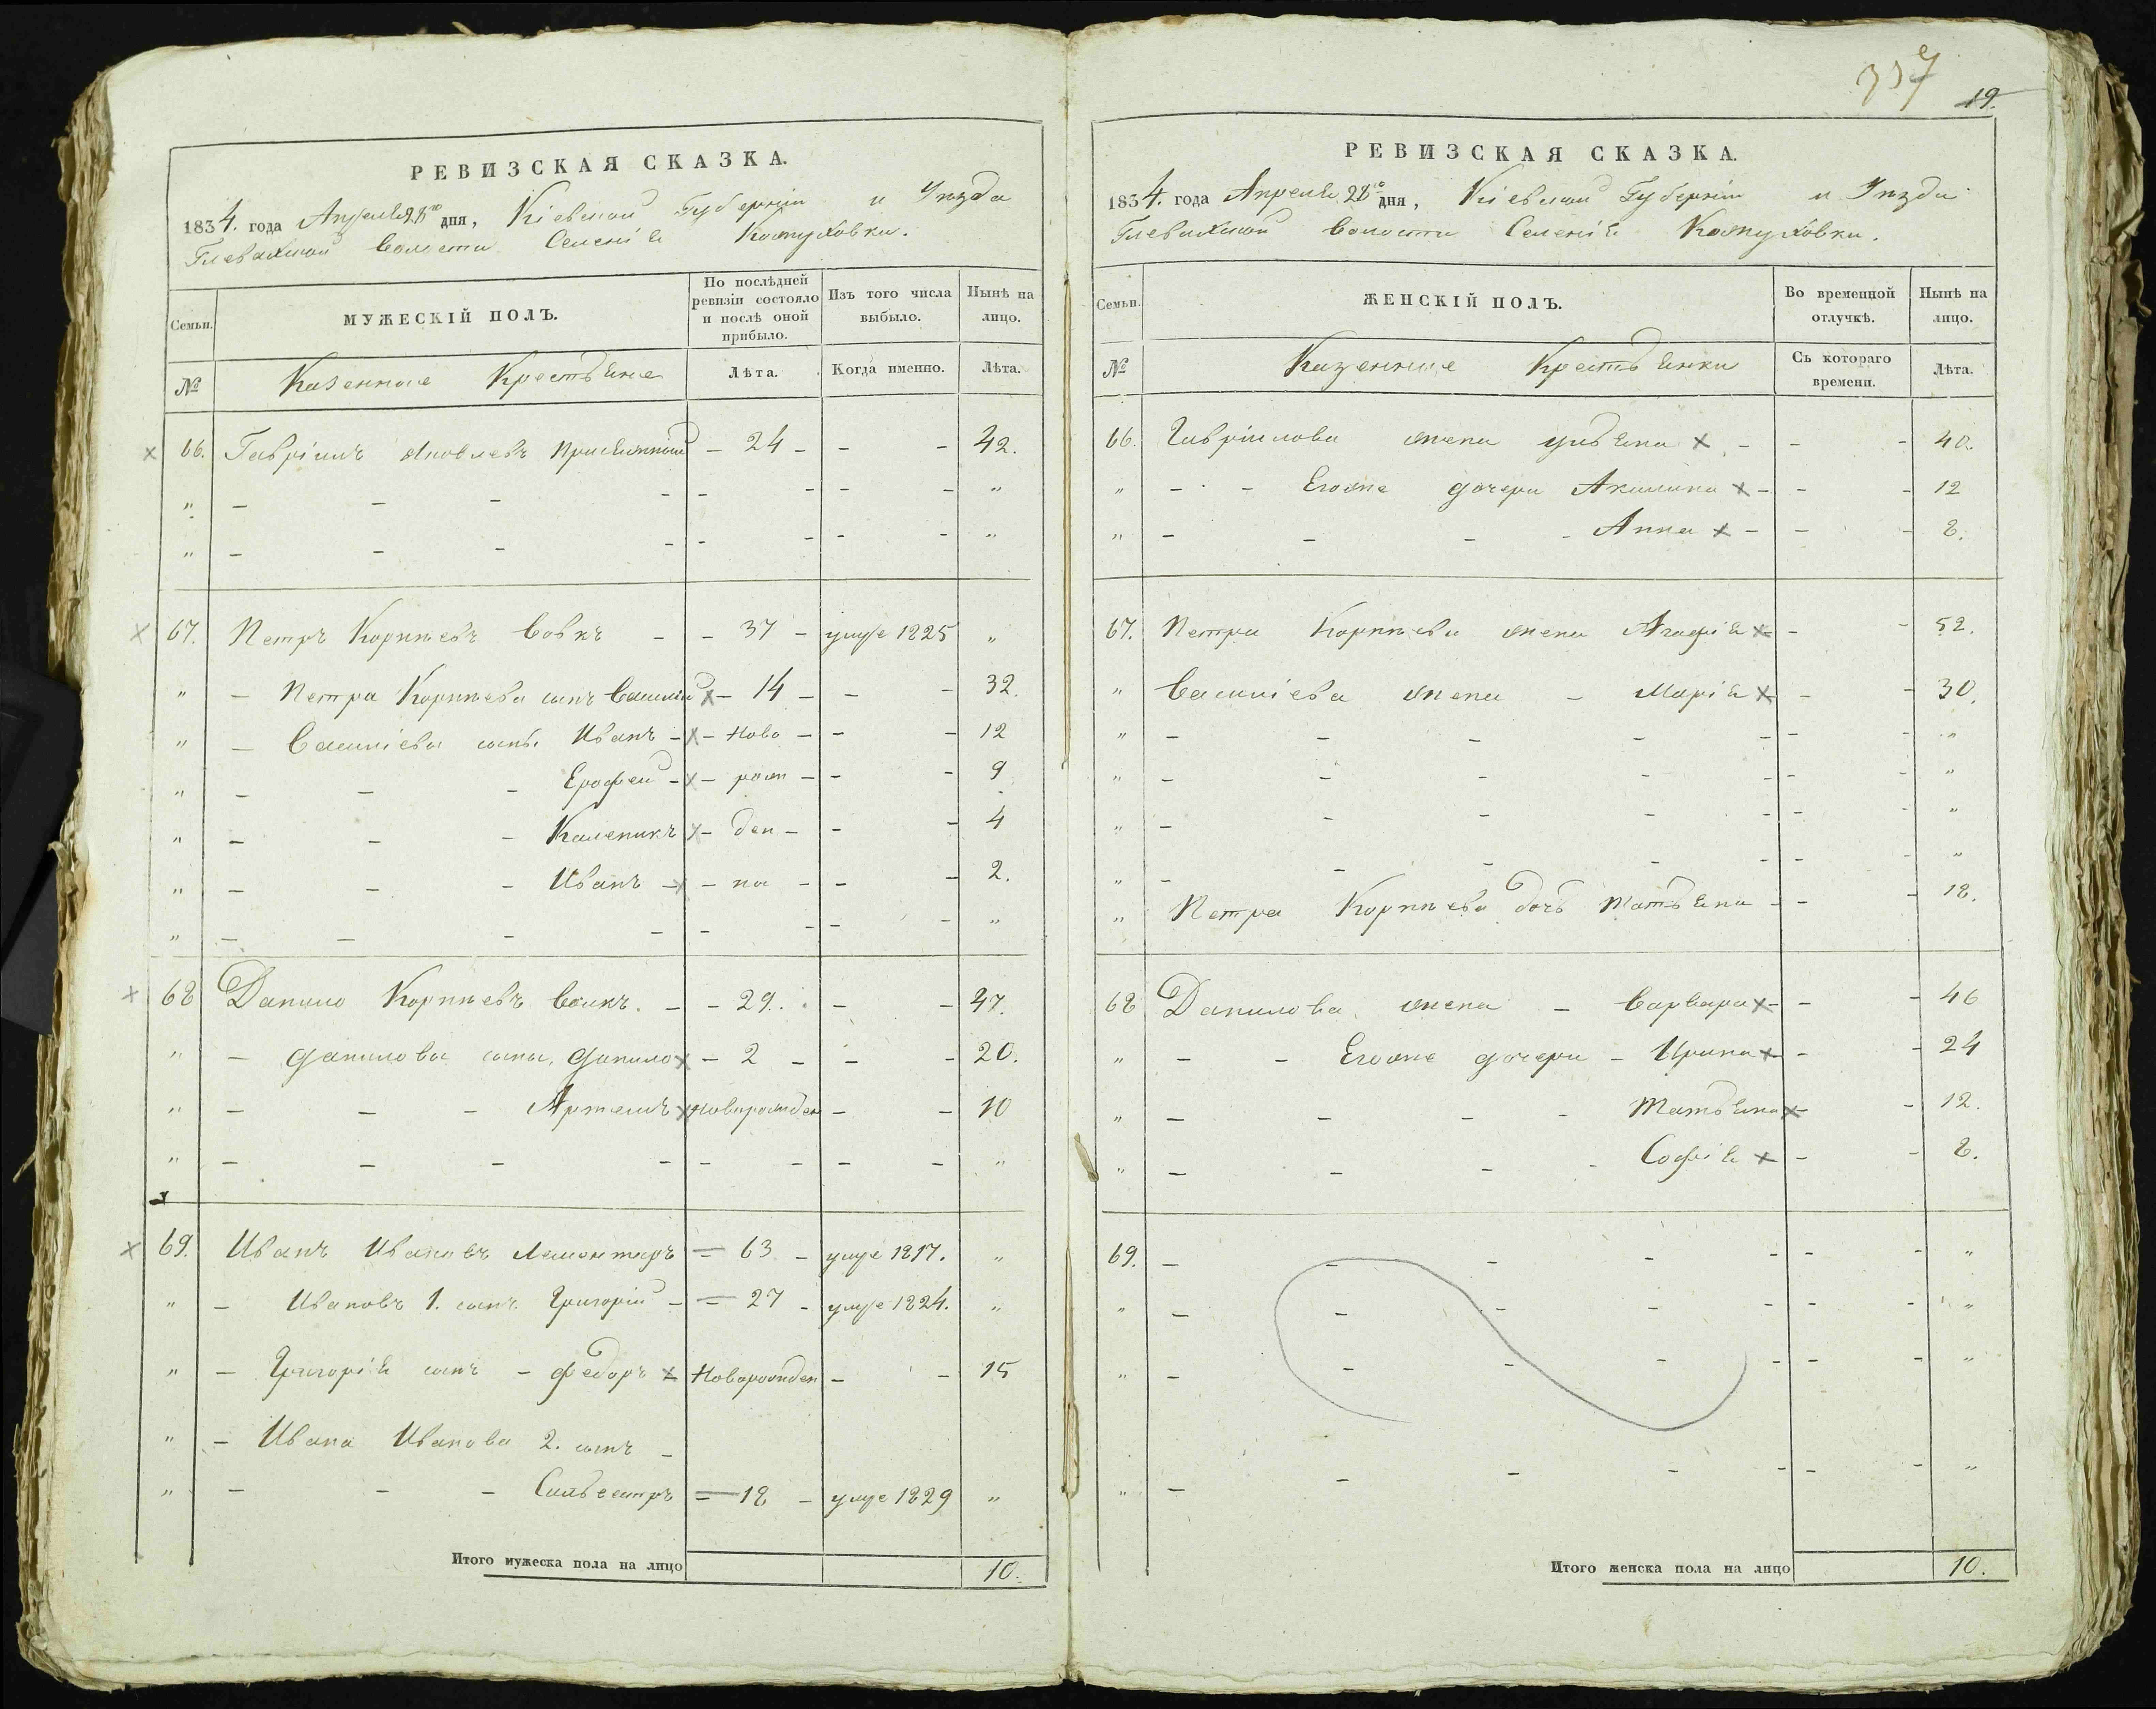 РЕВИЗСКАЯ СКАЗКА.
1834. года Апреля 28го дня, Кіевской Губерніи и Уѣзда
Глевахской Волости Селенія Кожуховки.
Семьи.
МУЖЕСКІЙ ПОЛЪ.
По послѣдней ревизіи состояло и послѣ оной прибыло.
Изъ того числа выбыло.
Нынѣ на лицо.
№
Казенные Крестьяне
Лѣта.
Когда именно.
Лѣта.
66. Гавріилъ Яковлевъ - 24 - - - 42.
" - - - - - - - - "
" - - - - - - - - "
67. Петръ Корнѣевъ Вовкъ - - 37 - умре 1825 "
" - Петра Корнѣева сынъ Василій x - 14 - - - 32.
" - Василіева сынъ. Иванъ - x - Ново - - - 12
" - - - Ерофей - x - рож - - - 9
" - - - Каленикъ x - ден - - - 4
" - - - Иванъ - x - на - - - 2.
" - - - - - - - - "
68 Данило Корнѣевъ Волкъ. - - 29. - - 47.
" - Данилова сыны, Данило x - 2 - - - 20.
" - - - Артемъ x Новорожден - - 10
" - - - - - - - - "
69. Иванъ Ивановъ Лемонтаръ - 63 - умре 1817. "
" - Ивановъ 1. сынъ Григорій - - 27 - умре 1824. "
" - Григорія сынъ - Федоръ x Новорожден - - 15
" - Ивана Иванова 2. сынъ -
" - - - Сильвестръ - 18 - умре 1829 "
Итого мужеска пола на лицо 10.
337
19.
РЕВИЗСКАЯ СКАЗКА.
1834. года Апреля 28го дня, Кіевской Губерніи и Уѣзда
Глевахской Волости Селенія Кожуховки.
Семьи.
ЖЕНСКІЙ ПОЛЪ.
Во временной отлучкѣ.
Нынѣ на лицо.
№
Казенные Крестьянки
Съ котораго времени.
Лѣта.
66. Гавріилова жена Ульяна x - - - 40.
" - - Егоже дочери Акилина x - - - 12
" - - - - Анна x - - - 8.
67. Петра Корнѣева жена Агафія x - - 52.
" Василіева жена - Марія x - - 30.
" - - - - - - - "
" - - - - - - - "
" - - - - - - - "
" - - - - - - - "
" Петра Корнѣева дочь Татьяна - - - 18.
68 Данилова жена - Варвара x - - - 46
" - - Егоже дочери - Ирина x - - 24
" - - - - Татьяна x - - 12.
" - - - - Софія x - - 8.
69. - - - - - - - "
" - - - - - - - "
" - - - - - - - "
" - - - - - - - "
Итого женска пола на лицо 10.